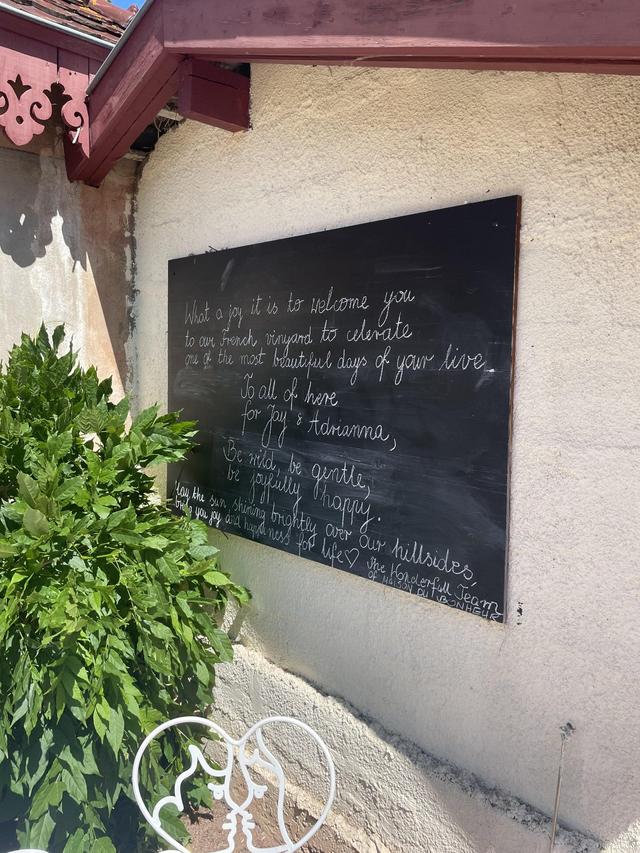 What a joy it is to welcome you
to our French vinyard to celerate
one of the most beautiful days of your live
To all of here
for Jay & Adrianna,
Be wild, be gentle,
be joyfully happy.
May the sun shining brightly over our hillsides,
bring you joy and happiness for life♡
The Wonderfull Team
OF MAISON DU BONHEUR